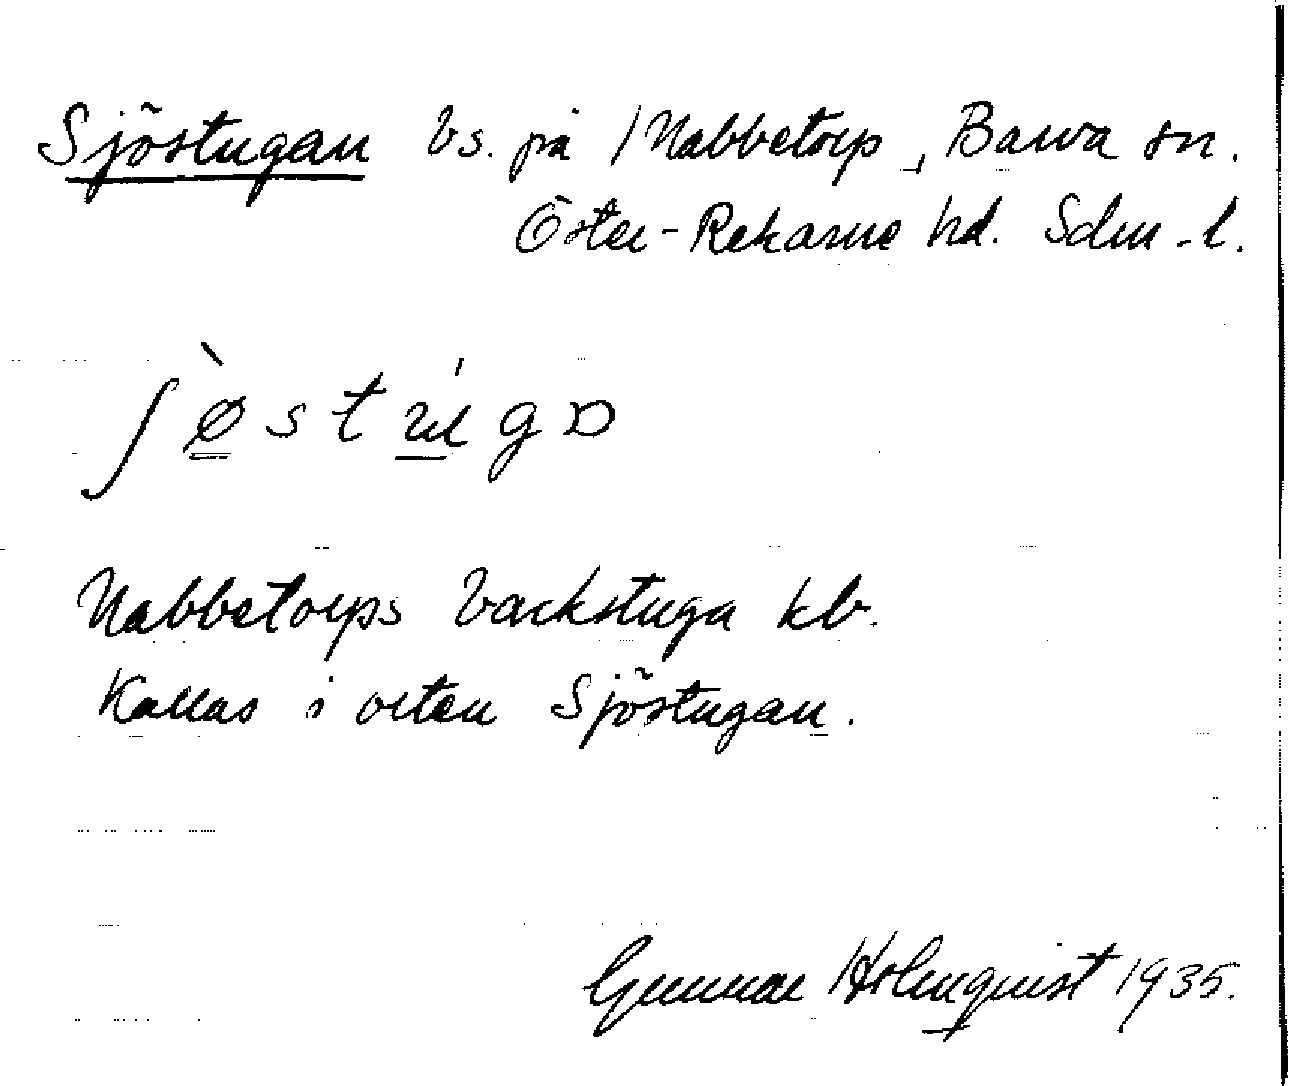 Sjöstugan bs. på /Nabbetorp, Barva sn.
Öster-Rekarne hd. Sdm-l.
ʃø̀stúgɒ
Nabbetorps backstuga kb.
Kallas i orten Sjöstugan.
Gunnar Holmquist 1935.